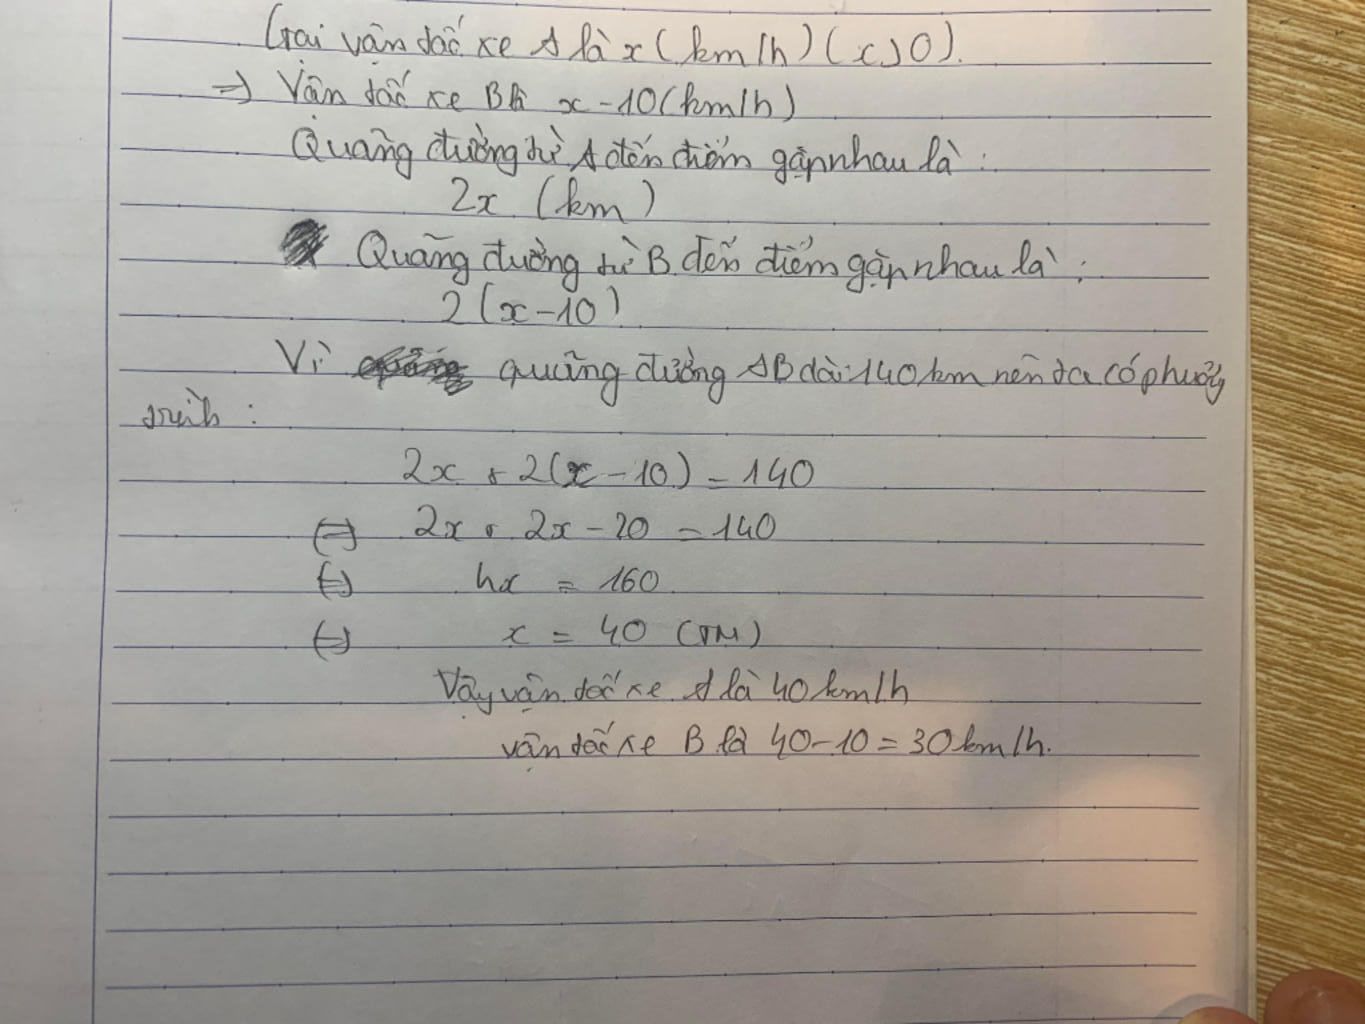 Gọi vận tốc xe A là x (km/h) (x>0).
=> Vận tốc xe B là x-10(km/h)
Quãng đường từ A đến điểm gặp nhau là :
2x (km)
Quãng đường từ B đến điểm gặp nhau là :
2(x-10)
Vì quãng đường AB dài 140km nên ta có phương
trình :
2x + 2(x-10) = 140
<=> 2x + 2x - 20 = 140
<=> 4x = 160
<=> x = 40 (TM)
Vậy vận tốc xe A là 40km/h
vận tốc xe B là 40-10=30km/h.